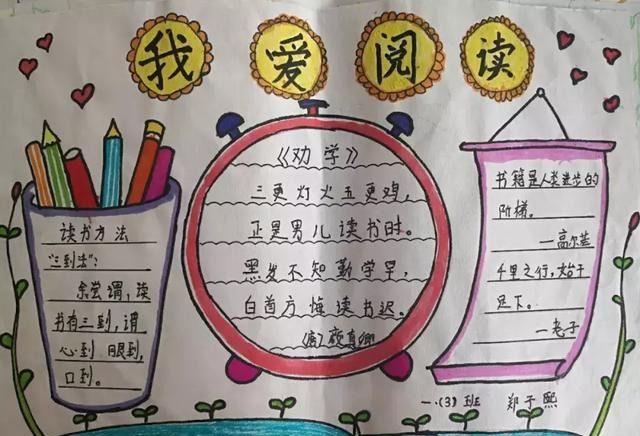 我爱阅读
读书方法
“三到法”:
余尝谓,读
书有三到,谓
心到 眼到,
口到。
《劝学》
三更灯火五更鸡,
正是男儿读书时。
黑发不知勤学早,
白首方悔读书迟。
(唐)颜真卿
书籍是人类进步的
阶梯。
—高尔基
千里之行,始于
足下。
—老子
一.(3)班 郑子熙